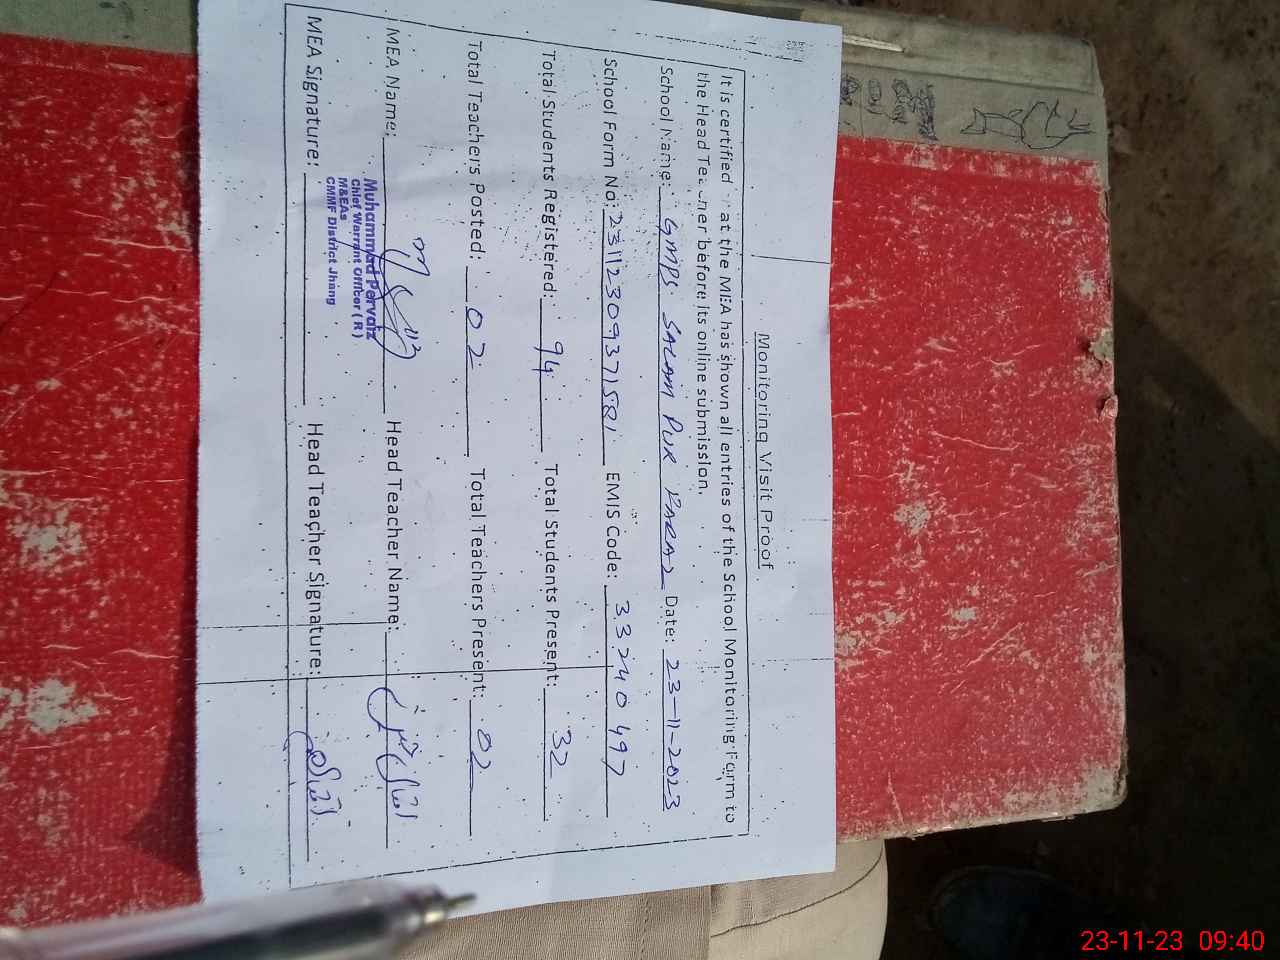 Monitoring Visit Proof
It is certified at the MEA has shown all entries of the School Monitoring Form to
the Head Teacher before its online submission.
School Name: GMPS SALAM PUR Date: 23-11-2023
School Form No: 23112309371581 EMIS Code: 33240497
Total Students Registered: 94 Total Students Present: 32
Total Teachers Posted: 02 Total Teachers Present: 02
MEA Name: Head Teacher Name:
Muhammad Pervaiz
Chief Warrant Officer (R)
M&EAs
CMMF District Jhang
MEA Signature: Head Teacher Signature:
23-11-23 09:40